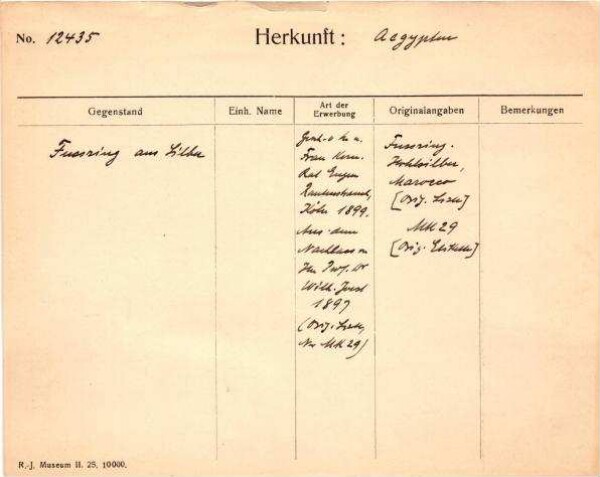 No. 12435 Herkunft: Aegypten
Gegenstand Einh. Name Art der Erwerbung Originalangaben Bemerkungen
Fussring aus Silber
Gesch. d. h. u.
Frau Kom.
Rat Eugen
Rautenstrauch,
Köln 1899.
Aus dem
Nachlass v.
Hn. Prof. Dr
Wilh. Joest
1897
(Orig. Liste,
No MK 29)
Fussring.
Hohlsilber,
Marocco
[Orig. Liste]
MK 29
[Orig. Etikette]
R.-J. Museum II. 25, 10000.